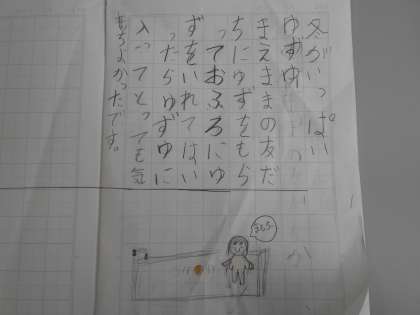 冬がいっぱい
ゆずゆ
まえままの友だ
ちにゆずをもら
っておふろにゆ
ずをいれてはい
ったらゆずゆに
入ってとっても気
もちよかったです。